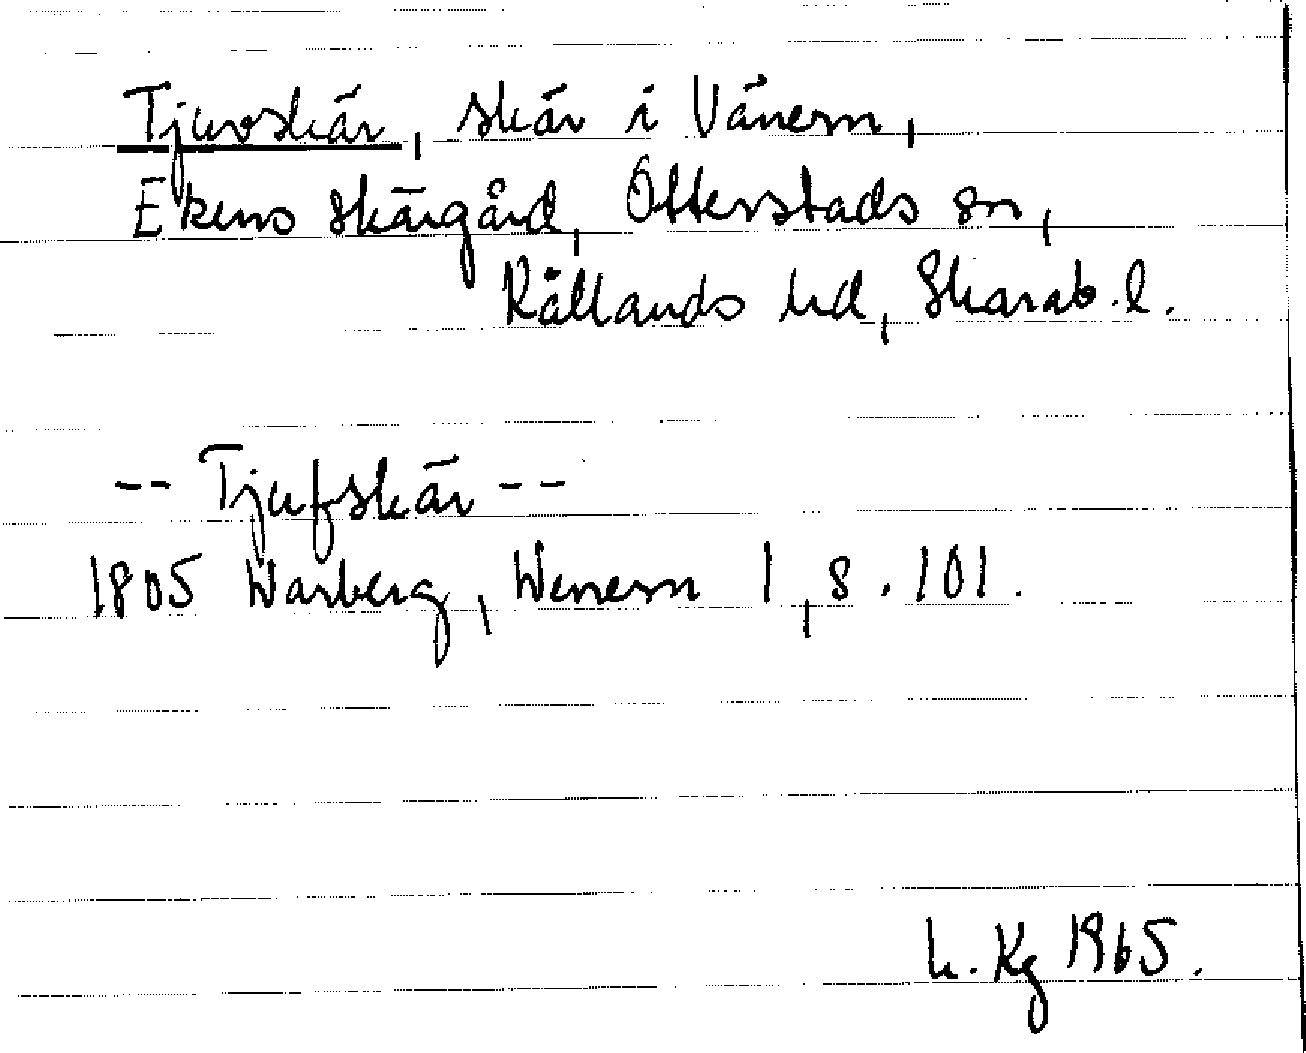 Tjuvskär, skär i Vänern,
Ekens skärgård, Otterstads sn,
Kållands hd, Skarab. l.
-- Tjufskär --
1805 Warberg, Wenern 1, s. 101.
h. Kg 1965.